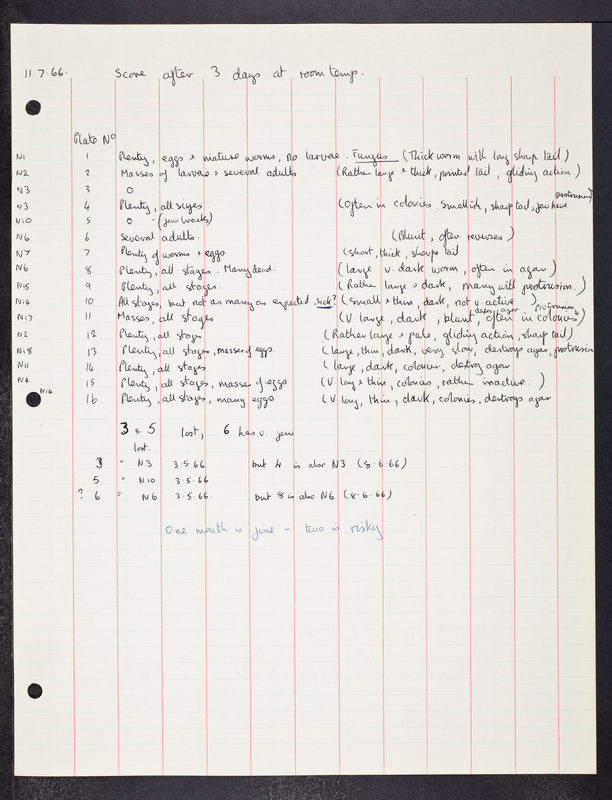 11.7.66. Score after 3 days at room temp.
Plate No
N1 1 Plenty, eggs & mature worms, no larvae. Fungus (Thick worm with long sharp tail)
N2 2 Masses of larvae & several adults (Rather large & thick, pointed tail, gliding action)
N3 3 0
protrusion)
N3 4 Plenty, all stages. (Often in colonies. Smallish, sharp tail, few have
N10 5 0 - (few tracks)
N6 6 Several adults. (Blunt, often reverses)
N7 7 Plenty of worms & eggs (Short, thick, sharp tail
N6 8 Plenty, all stages. Many dead. (large v. dark worm, often in agar)
N15 9 Plenty, all stages. (Rather large & dark, many with protrusion.)
N14 10 All stages, but not as many as expected. Sick? (Small & thin, dark, not v. active)
deep agar protrusion
N17 11 Masses, all stages (V large, dark, blunt, often in colonies)
N2 12 Plenty, all stages (Rather large & pale, gliding action, sharp tail)
N18 13 Plenty, all stages, masses of eggs. (large, thin, dark, very slow, destroys agar, protrusion
N11 14 Plenty, all stages (large, dark, colonies, destroy agar
15 Plenty, all stages, masses of eggs (V long & thin, colonies, rather inactive.)
N16 16 Plenty, all stages, many eggs (V long, thin, dark, colonies, destroys agar
3 & 5 lost, 6 has v. few
lost.
3 " N3 3.5.66 but 4 is also N3 (8.6.66)
5 = N10 3.5.66
? 6 = N6 3.5.66. but 8 is also N6 (8.6.66)
One month is fine - two is risky.